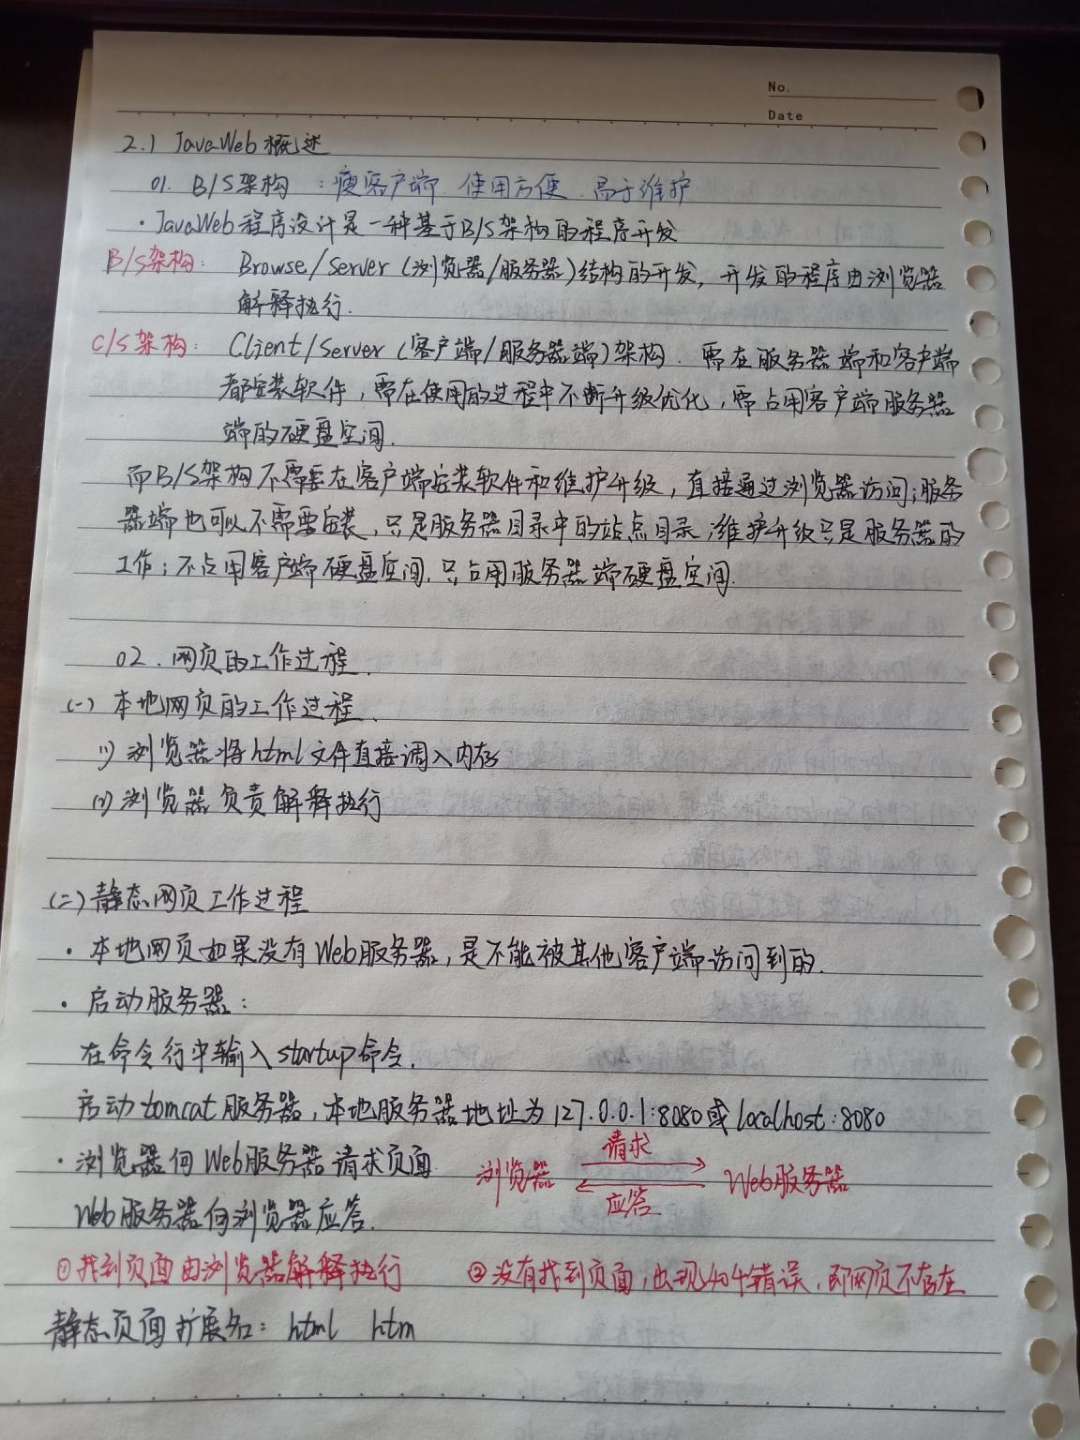 No.
Date
2.1 JavaWeb概述
01. B/S架构：瘦客户端、使用方便、易于维护
·JavaWeb程序设计是一种基于B/S架构的程序开发
B/S架构： Browse/Server（浏览器/服务器）结构的开发，开发的程序由浏览器
解释执行.
C/S架构： Client/Server（客户端/服务器端）架构. 需在服务器端和客户端
都安装软件，需在使用的过程中不断升级优化，需占用客户端服务器
端的硬盘空间.
而B/S架构不需要在客户端安装软件和维护升级，直接通过浏览器访问；服务
器端也可以不需要安装，只是服务器目录中的站点目录；维护升级只是服务器的
工作；不占用客户端硬盘空间，只占用服务器端硬盘空间.
02. 网页的工作过程.
(一) 本地网页的工作过程.
(1) 浏览器将html文件直接调入内存
(2) 浏览器负责解释执行
(二) 静态网页工作过程
·本地网页如果没有Web服务器，是不能被其他客户端访问到的.
·启动服务器：
在命令行中输入startup命令.
启动tomcat服务器，本地服务器地址为127.0.0.1:8080或localhost:8080
·浏览器向Web服务器请求页面. 浏览器 请求 应答 Web服务器
Web服务器向浏览器应答.
①找到页面由浏览器解释执行 ②没有找到页面，出现404错误，即网页不存在
静态页面扩展名： html htm